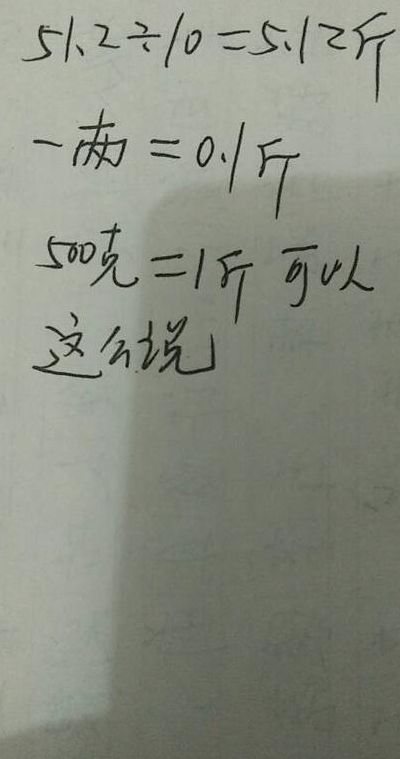 51.2÷10=5.12斤
一两=0.1斤
500克=1斤 可以
这么说